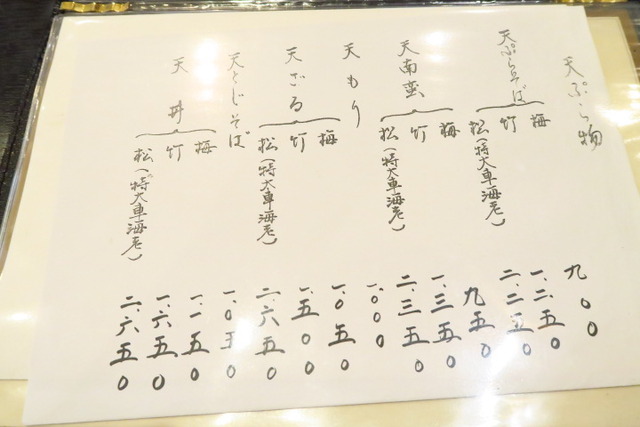 天ぷら物
天ぷらそば
梅 九〇〇
竹 一、二五〇
松(特大車海老) 二、二五〇
天南蛮
梅 九五〇
竹 一、三五〇
松(特大車海老) 二、三五〇
天もり 一、〇〇〇
天ざる
梅 一、〇五〇
竹 一、五〇〇
松(特大車海老) 二、六五〇
天とじそば 一、〇五〇
天丼
梅 一、一五〇
竹 一、六五〇
松(特大車海老) 二、六五〇